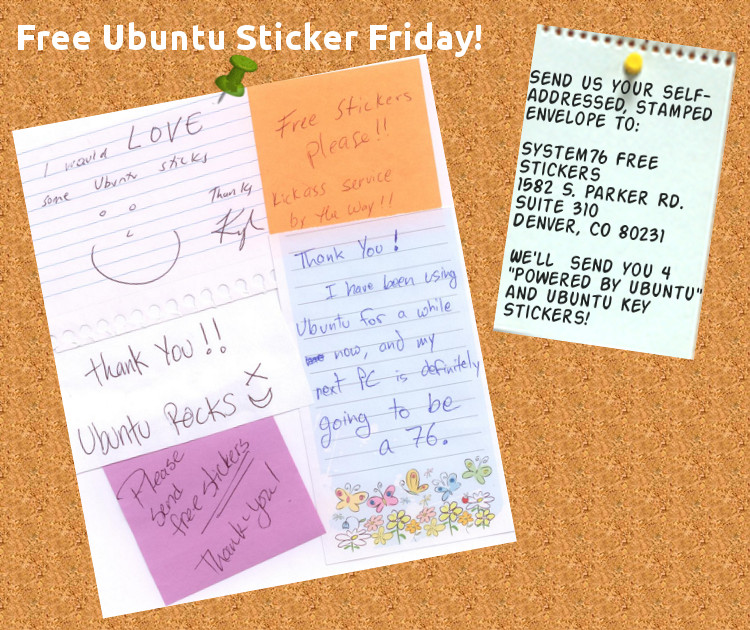 Free Ubuntu Sticker Friday!
I would LOVE
some Ubuntu sticks
Thanks
Kyle
Free Stickers
please!!
Kickass service
by the way!!
Thank You!
I have been using
Ubuntu for a while
now, and my
next PC is definitely
going to be
a 76.
Thank You!!
Ubuntu Rocks
Please
send
free stickers
Thank you!
SEND US YOUR SELF-
ADDRESSED, STAMPED
ENVELOPE TO:
SYSTEM76 FREE
STICKERS
1582 S. PARKER RD.
SUITE 310
DENVER, CO 80231
WE'LL SEND YOU 4
"POWERED BY UBUNTU"
AND UBUNTU KEY
STICKERS!